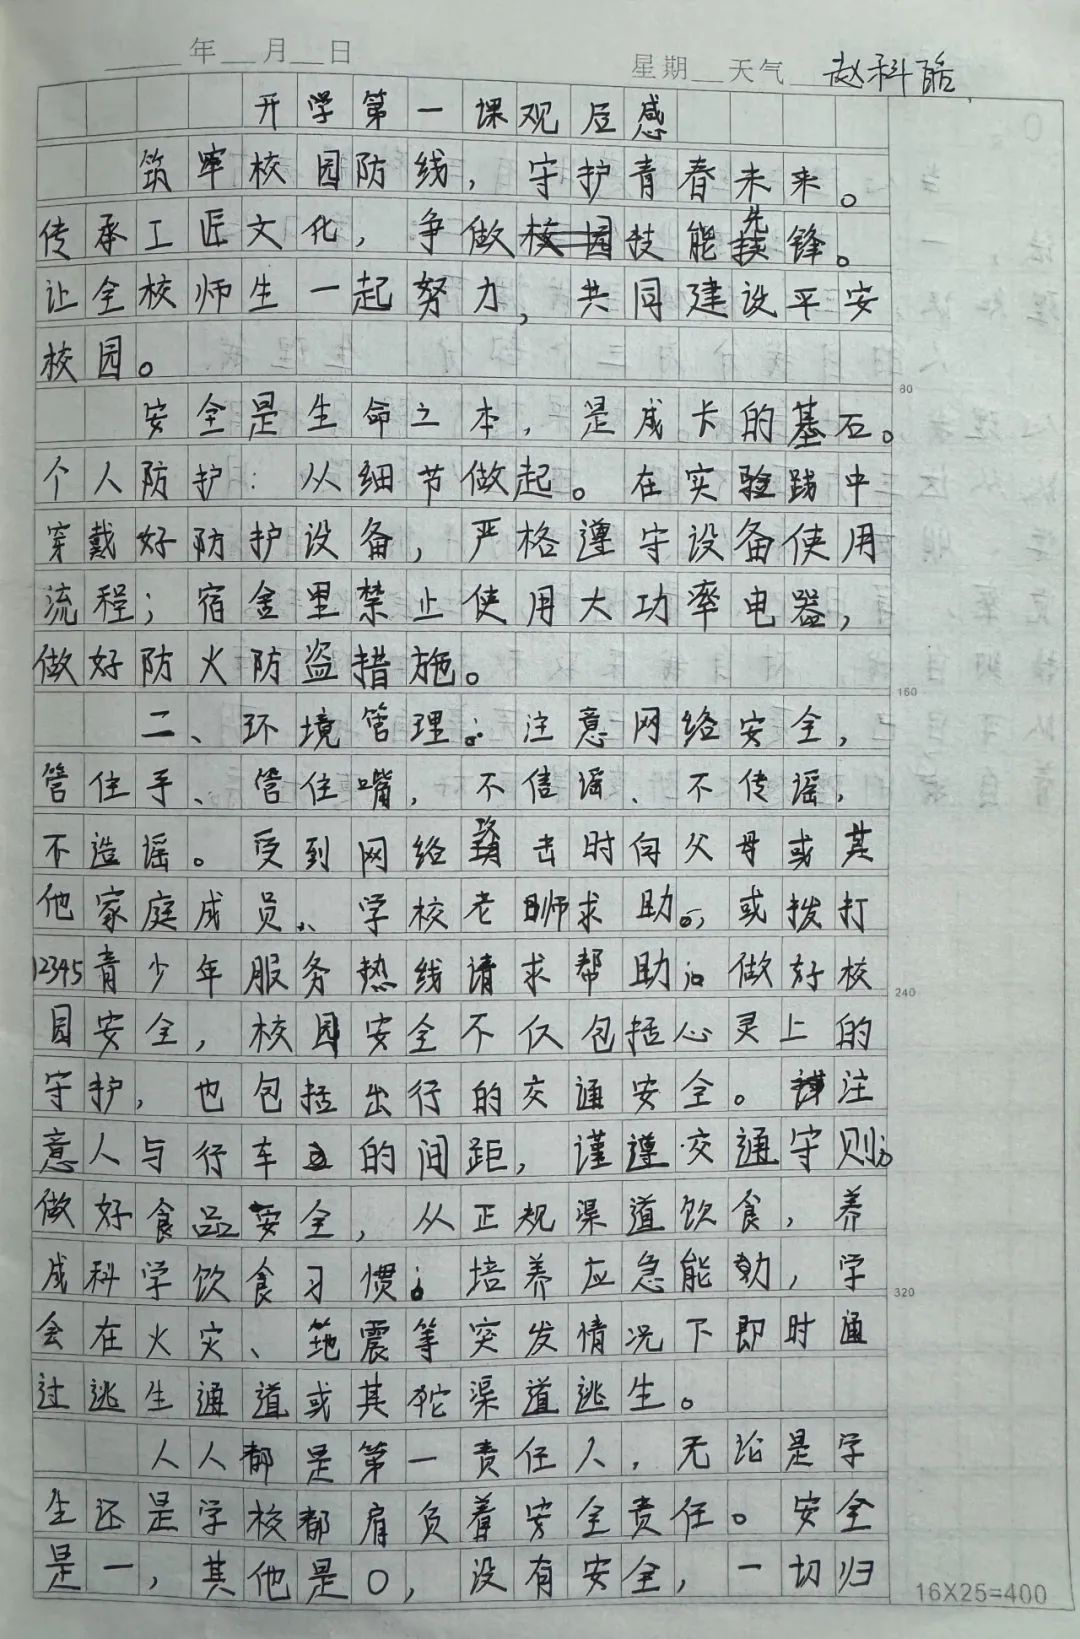 年 月 日 星期 天气 赵科皓
开学第一课观后感
筑牢校园防线，守护青春未来。
传承工匠文化，争做技能先锋。
让全校师生一起努力，共同建设平安
校园。
80
安全是生命之本，是成卡的基石。
个人防护：从细节做起。在实验践中
穿戴好防护设备，严格遵守设备使用
流程；宿舍里禁止使用大功率电器，
做好防火防盗措施。
160
二、环境管理。注意网络安全，
管住手、管住嘴，不信谣、不传谣，
不造谣。受到网络 击时向父母或其
他家庭成员、学校老师求助，或拨打
12345青少年服务热线请求帮助。做好校
240
园安全，校园安全不仅包括心灵上的
守护，也包括出行的交通安全。注
意人与行车的间距，谨遵交通守则；
做好食品安全，从正规渠道饮食，养
成科学饮食习惯；培养应急能力，学
320
会在火灾、地震等突发情况下即时通
过逃生通道或其他渠道逃生。
人人都是第一责任人，无论是学
生还是学校都肩负着安全责任。安全
是一，其他是0，没有安全，一切归
16X25=400